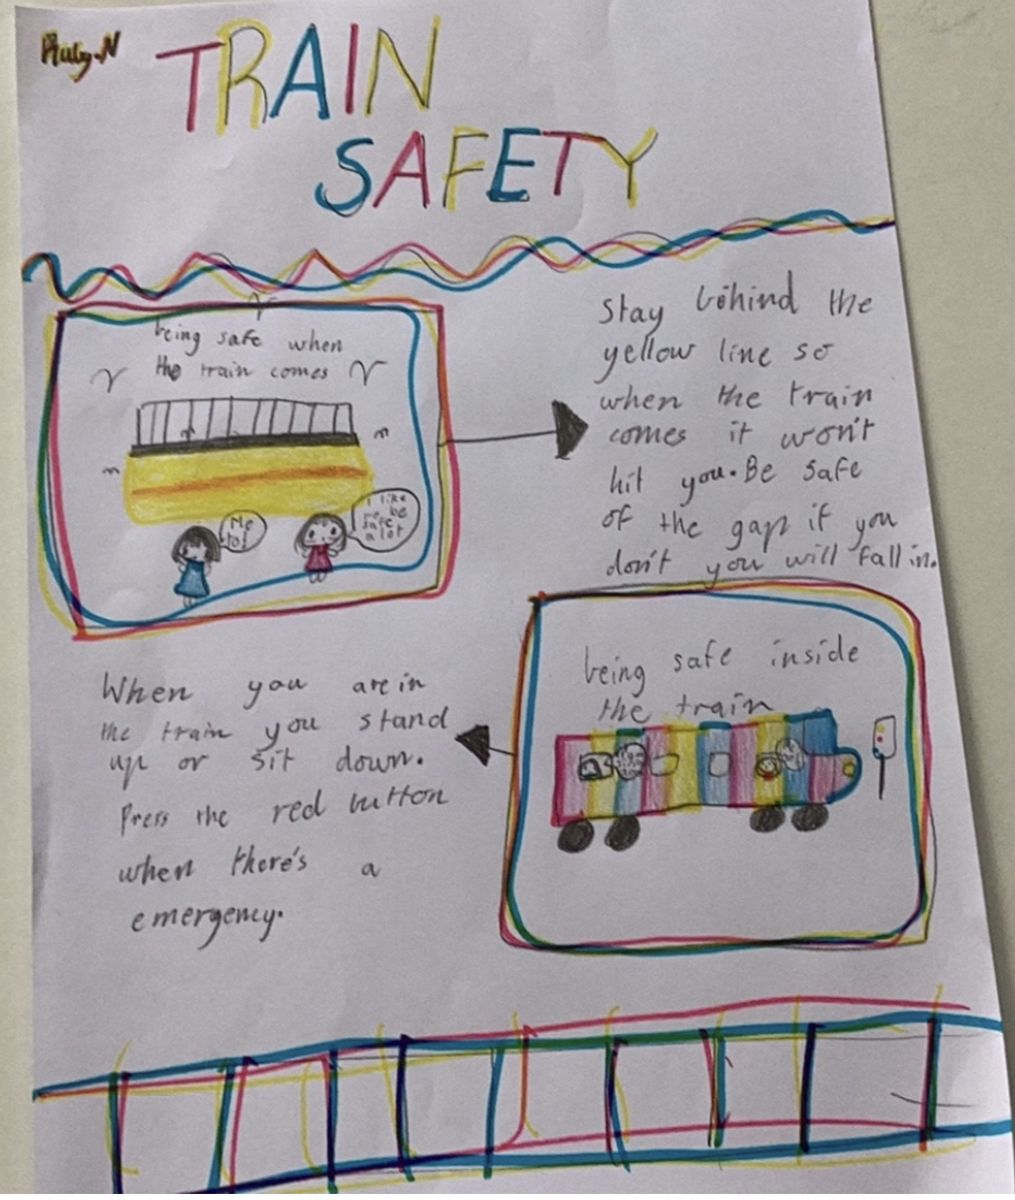 Ruby.N
TRAIN
SAFETY
being safe when
the train comes
Me
too!
I like
to be
safe
a lot
Stay behind the
yellow line so
when the train
comes it won't
hit you. Be safe
of the gap if you
don't you will fall in.
being safe inside
the train
When you are in
the train you stand
up or sit down.
Press the red button
when there's a
emergency.